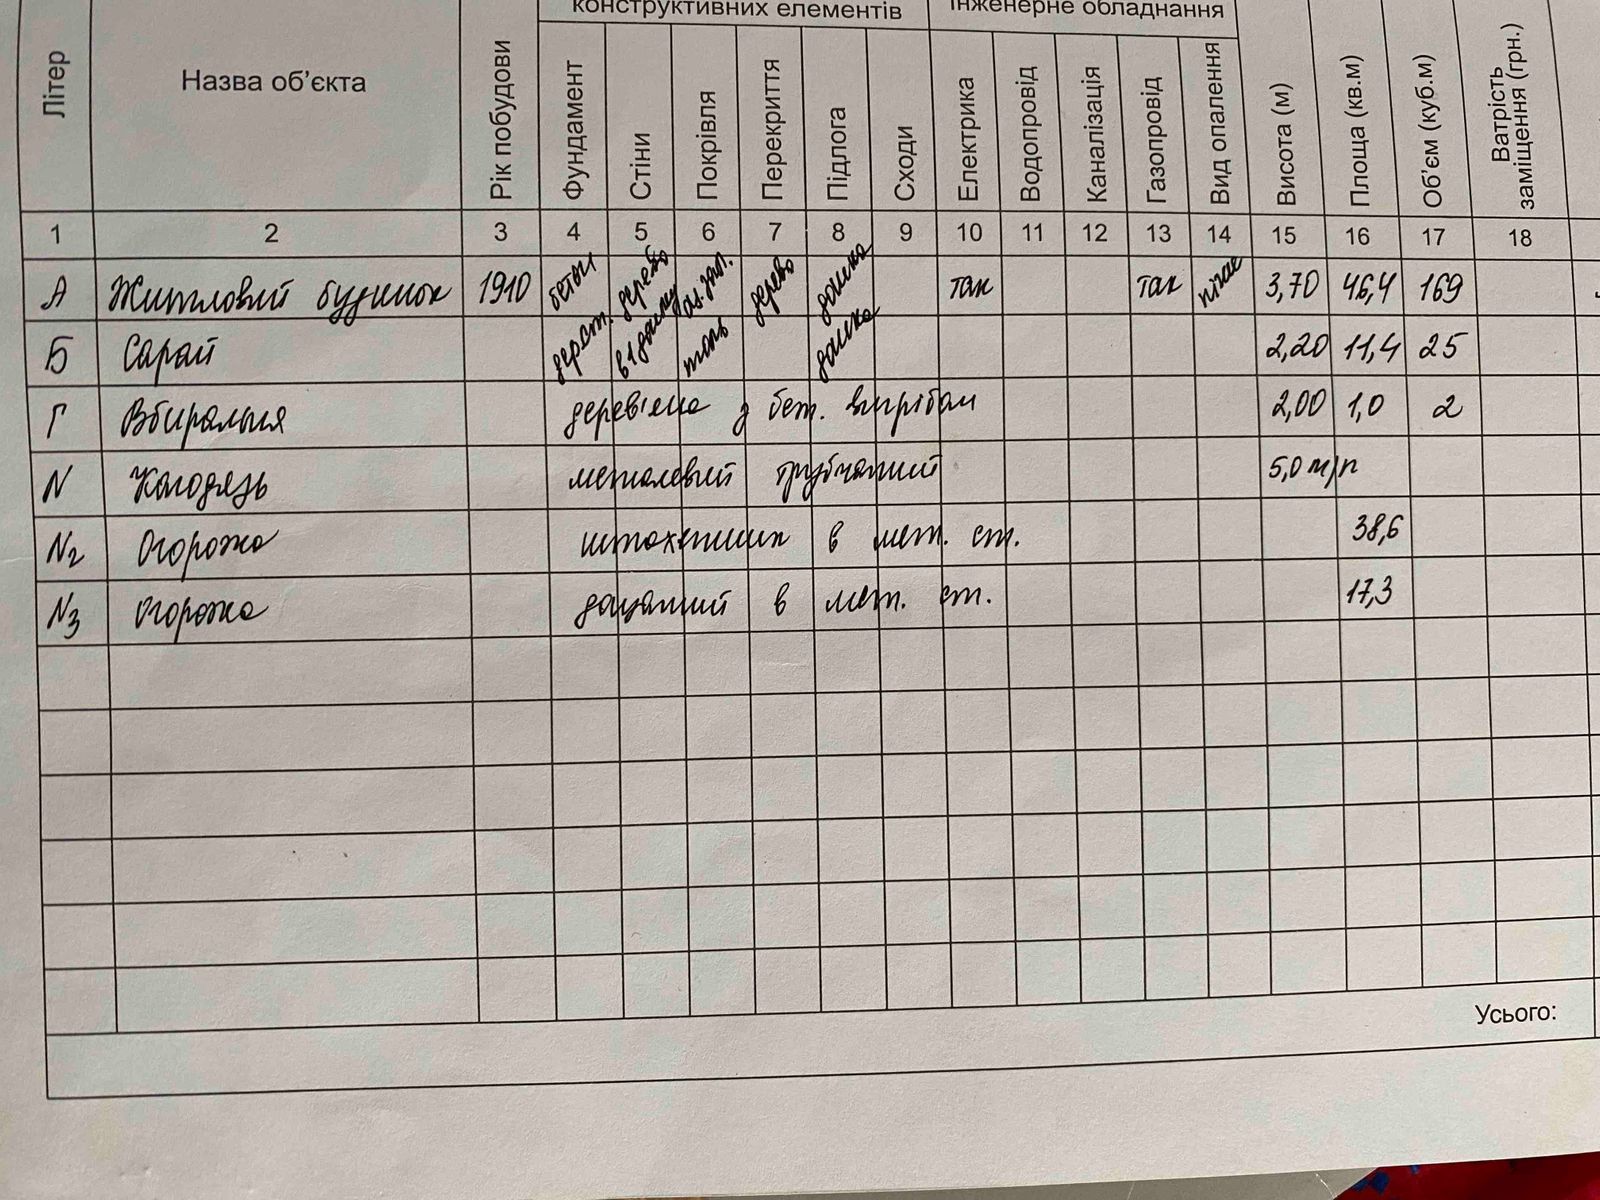 конструктивних елементів інженерне обладнання
Літер Назва об'єкта Рік побудови Фундамент Стіни Покрівля Перекриття Підлога Сходи Електрика Водопровід Каналізація Газопровід Вид опалення Висота (м) Площа (кв.м) Об'єм (куб.м) Ватрість заміщення (грн.)
1 2 3 4 5 6 7 8 9 10 11 12 13 14 15 16 17 18
А Житловий будинок 1910 бетон дерево дерево дошка так так пічне 3,70 46,4 169
Б Сарай дошка 2,20 11,4 25
Г Вбиральня дерев'яна з бет. вигрібом 2,00 1,0 2
N Колодязь металевий трубчатий 5,0 м/п
N2 Огорожа штахетник в мет. ст. 38,6
N3 Огорожа дощатий в мет. ст. 17,3
Усього: